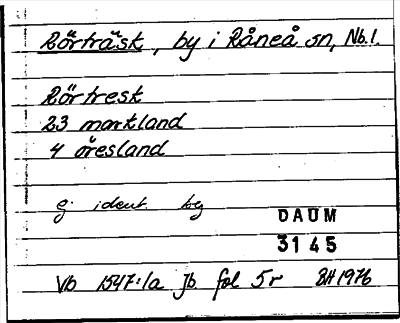 Rörträsk, by i Råneå sn, Nb.l.
Rörtresk
23 markland
4 öresland
ej ident. by
DAUM
3145
Vb 1547:1a Jb fol 5r BH 1976